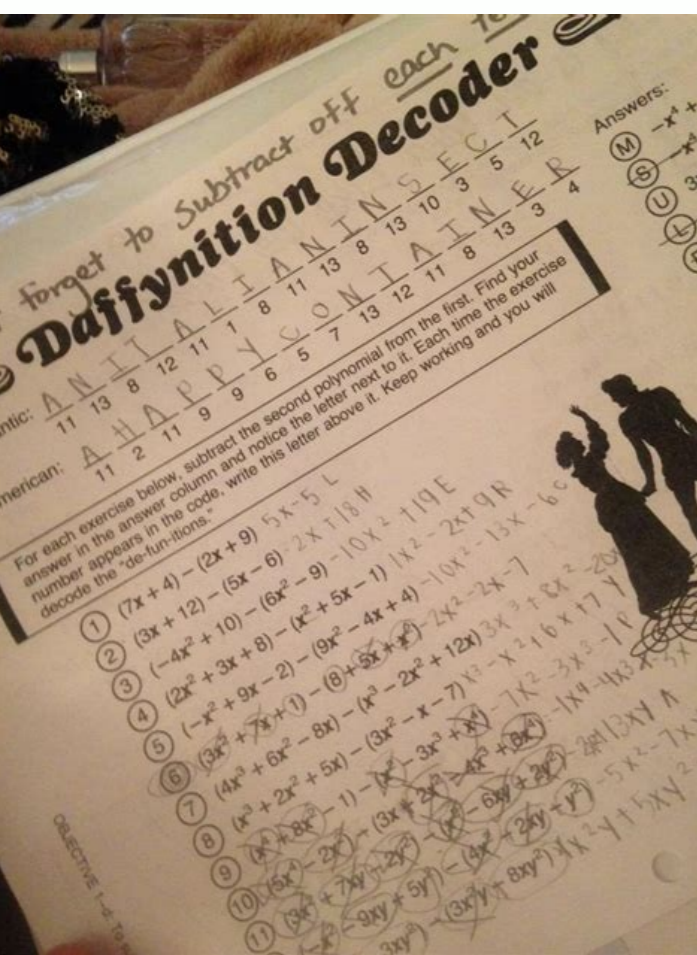 forget to subtract off each
Daffynition Decoder
ntic: A N I T A L I A N I N S E C T
11 13 8 12 11 1 8 11 13 8 13 10 3 5 12
merican: A H A P P Y C O N T A I N E R
11 2 11 9 9 6 5 7 13 12 11 8 13 3 4
For each exercise below, subtract the second polynomial from the first. Find your
answer in the answer column and notice the letter next to it. Each time the exercise
number appears in the code, write this letter above it. Keep working and you will
decode the "de-fun-itions."
Answers:
M -x⁴
S -x
U 3
L
1 (7x + 4) – (2x + 9) 5x-5 L
2 (3x + 12) – (5x – 6) -2x+18 H
3 (–4x² + 10) – (6x² – 9) -10x² +19 E
4 (2x² + 3x + 8) – (x² + 5x – 1) 1x² - 2x+9 R
5 (–x² + 9x – 2) – (9x² – 4x + 4) -10x² -13x -6 C
6 (3x² + 7x + 1) – (8 + 5x + x²) -2x² -2x -7
7 (4x³ + 6x² – 8x) – (x³ – 2x² + 12x) 3x³ + 8x² -20x
8 (x³ + 2x² + 5x) – (3x² – x – 7) x³ -x² +6x +7 Y
9 (x² + 8x² – 1) – (x² – 3x³ + x⁴) -7x² -3x³ -1 P
10 (5x⁴ – 2x²) – (3x + 2x² – 4x³ + 8x⁴) -1x⁴ -4x³ -3x
11 (3x² + 7xy – 2y²) – (x² – 6xy + 2y²) 13xy A
(–x² – 9xy + 5y²) – (4x² – 2xy + y²) -5x² -7x
3xy²) – (3x²y + 8xy²) x²y + 5xy²
OBJECTIVE 1–d: To